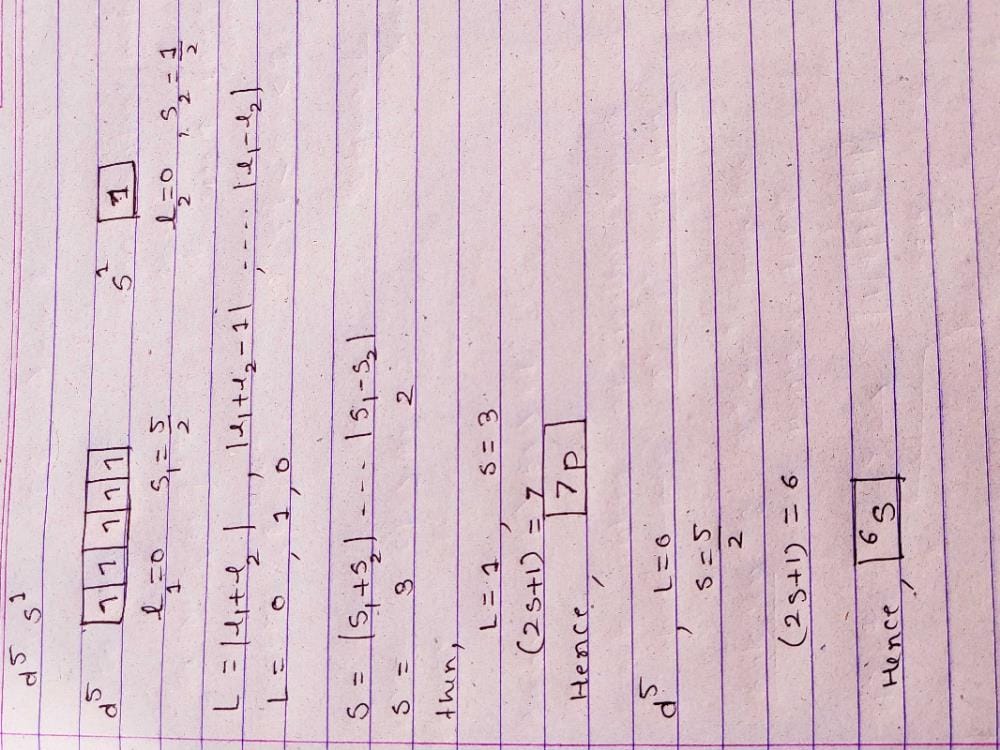 d⁵ s¹
d⁵ 1 1 1 1 1 s¹ 1
l₁=0 s₁=5/2 l₂=0 , s₂=1/2
L = |l₁+l₂| , |l₁+l₂-1| , .... |l₁-l₂|
L = 0 , 1 , 0
S = |S₁+S₂| - - - |S₁-S₂|
S = 3 2
then,
L=1 , S=3
(2S+1) = 7
Hence , 7P
d⁵ , L=0
S=5/2
(2S+1) = 6
Hence , ⁶S